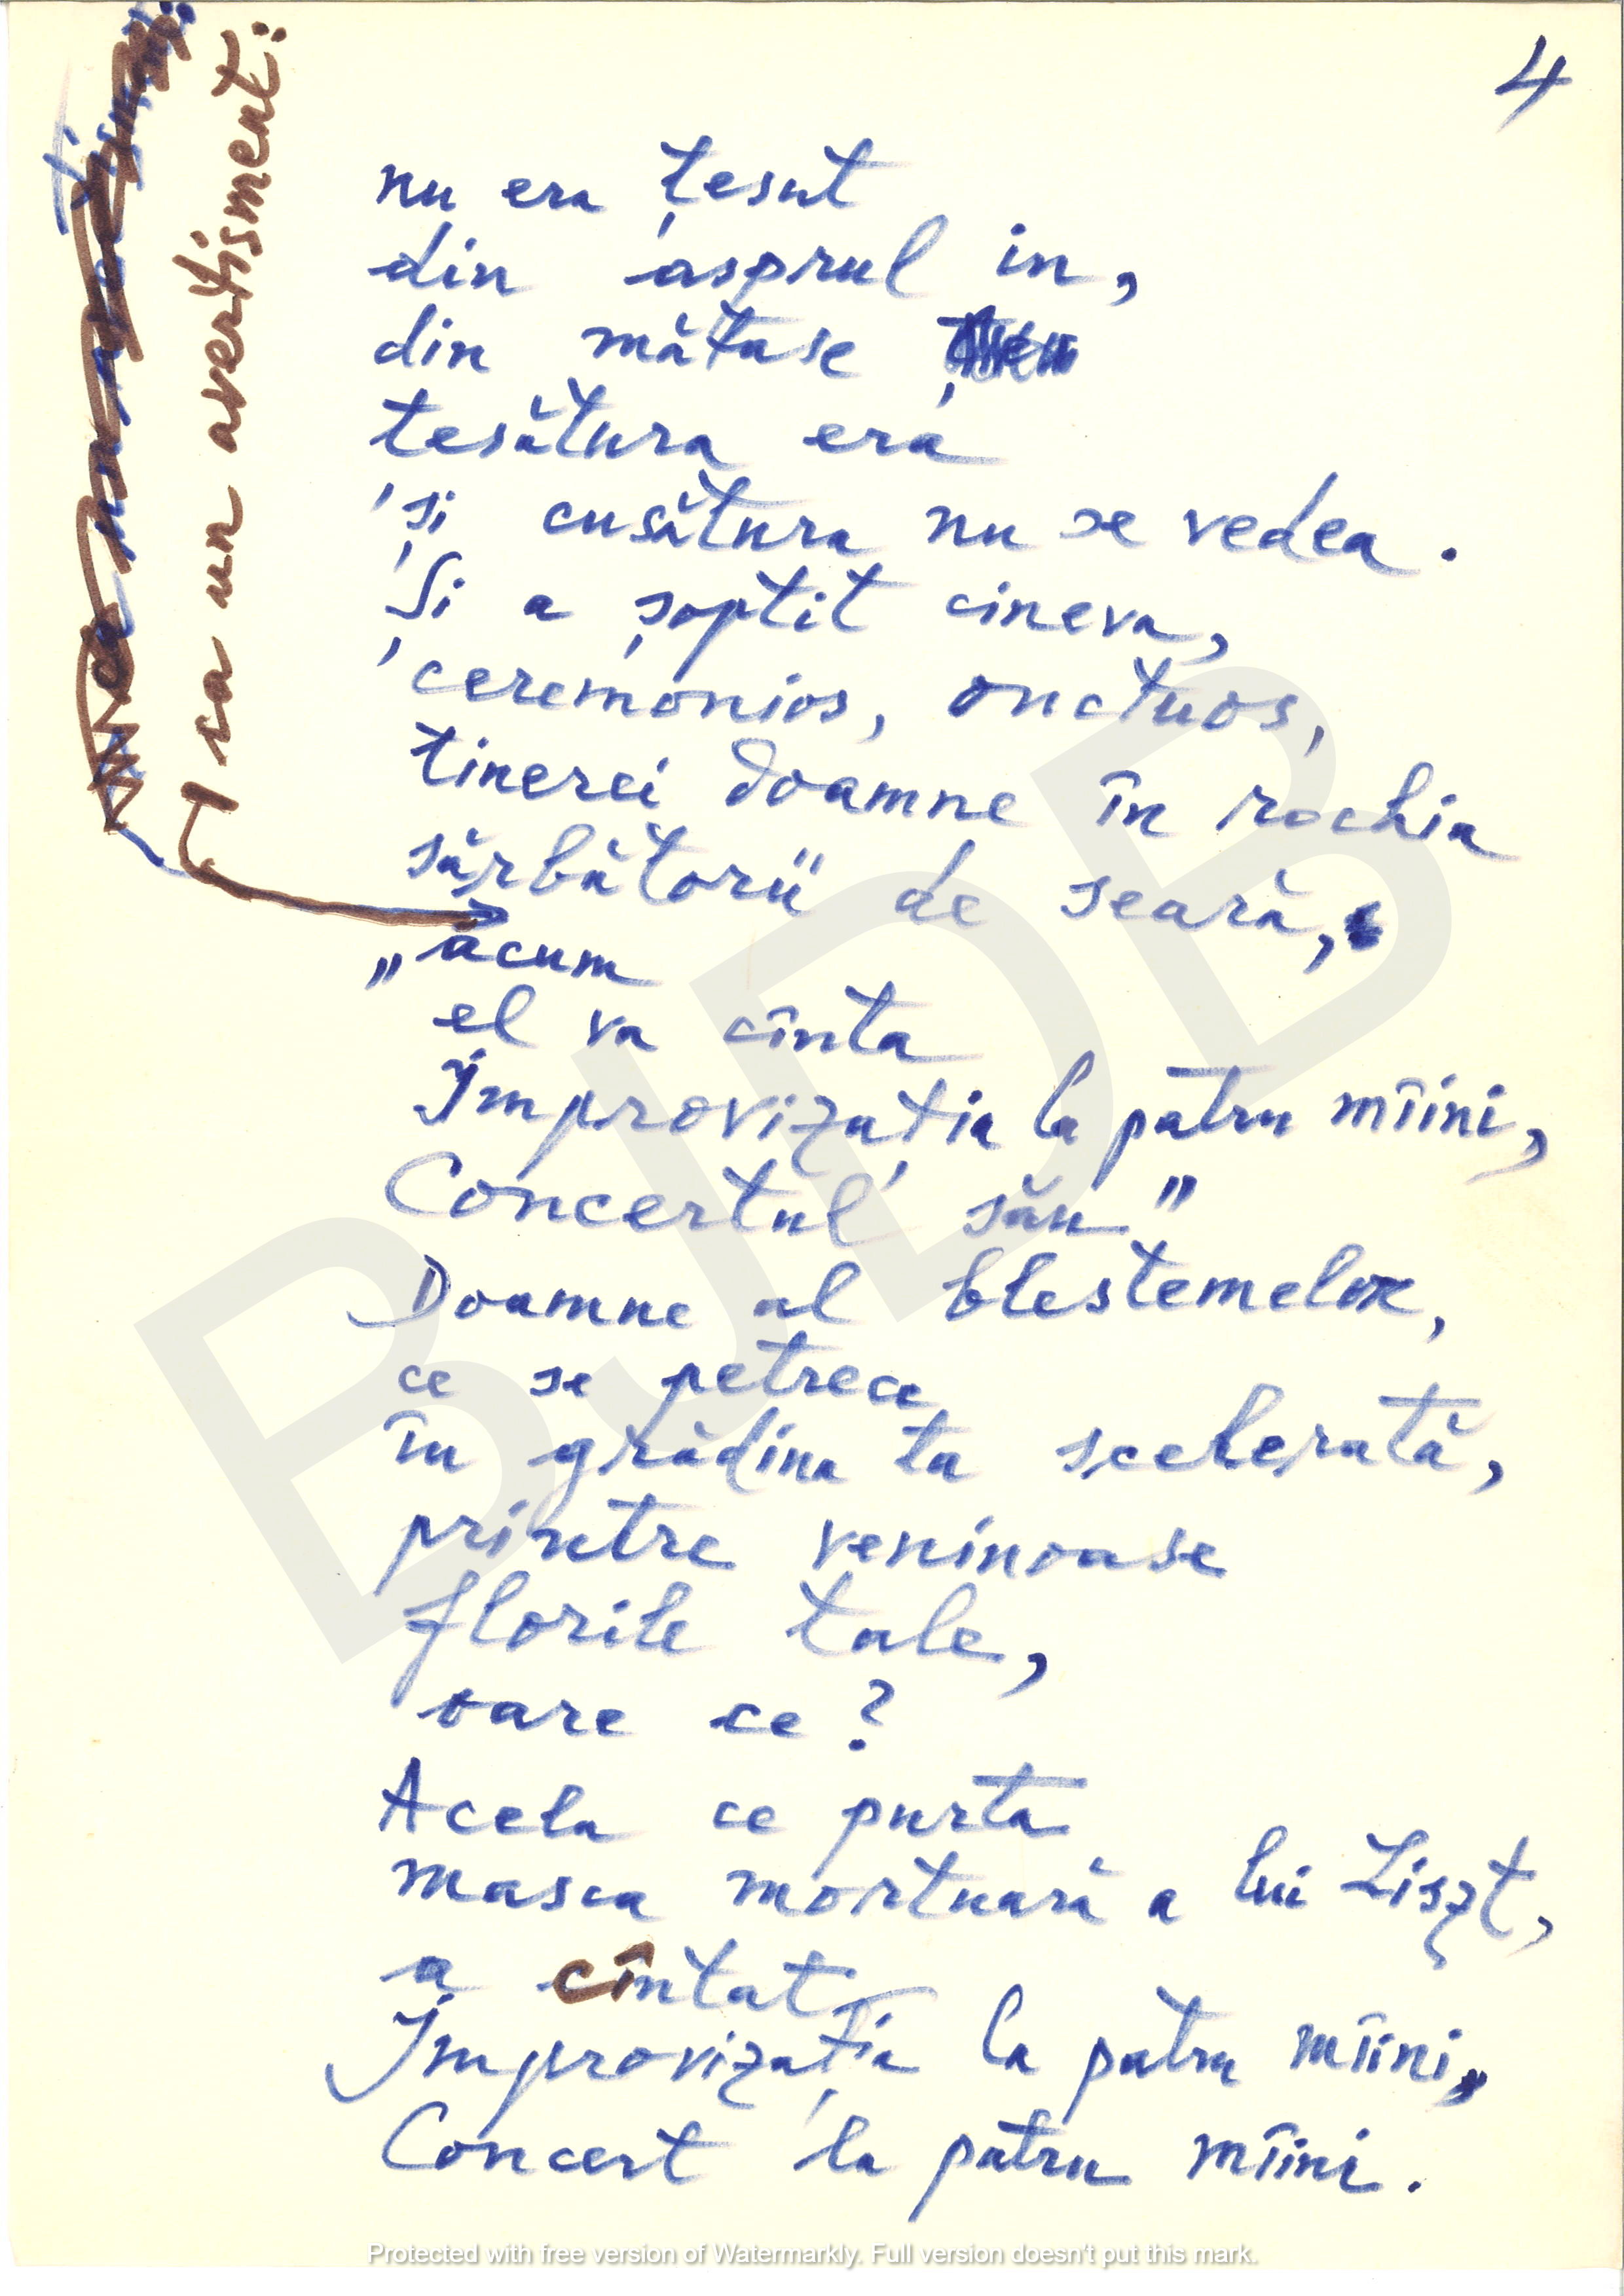 4
ca un avertisment:
nu era țesut
din asprul in,
din mătase
țesătura era
și cusătura nu se vedea.
Și a șoptit cineva,
ceremonios, onctuos,
tinerei doamne în rochia
sărbătorii de seară,
„acum
el va cînta
Improvizația la patru mîini,
Concertul său"
Doamne al blestemelor,
ce se petrece
în grădina ta scelerată,
printre veninoase
florile tale,
oare ce?
Acela ce purta
masca mortuară a lui Liszt,
a cîntat
Improvizația la patru mîini,
Concert la patru mîini.
BJDB
Protected with free version of Watermarkly. Full version doesn't put this mark.